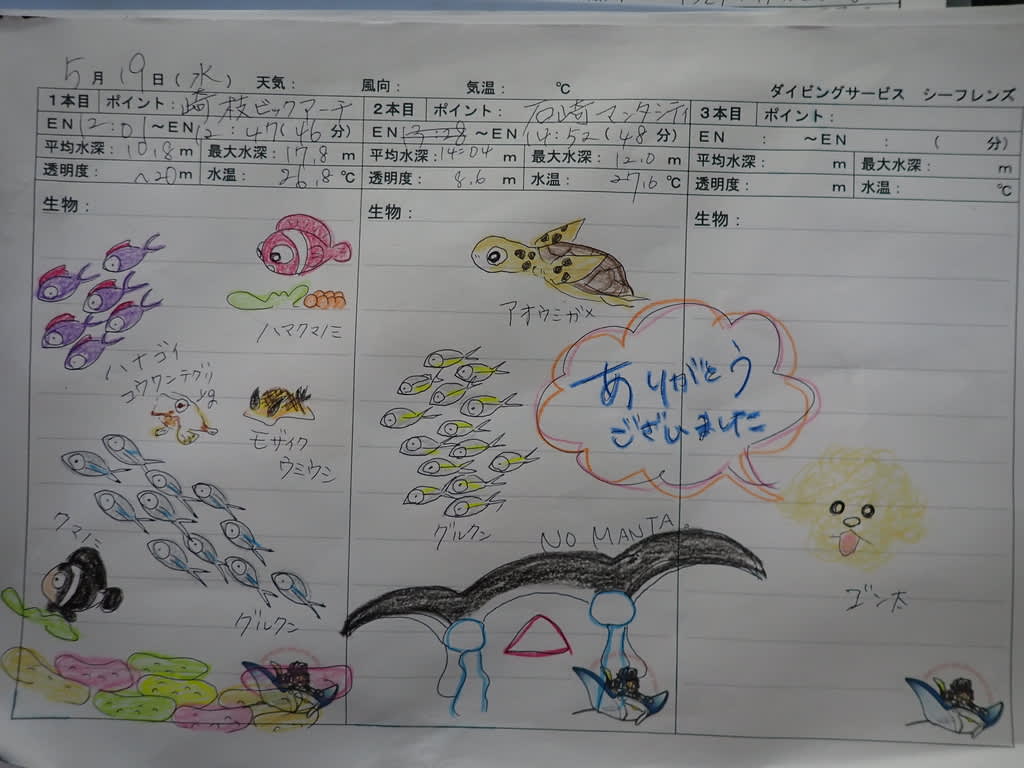 5月19日(水) 天気： 風向： 気温： ℃
ダイビングサービス シーフレンズ
1本目 ポイント：崎枝ビックアーチ
EN 12：01～EN 12：47(46分)
平均水深：10.8m 最大水深：17.8m
透明度：～20m 水温：26.8℃
生物：
ハナゴイ
ハマクマノミ
コウワンテグリ
モザイク
ウミウシ
クマノミ
グルクン
2本目 ポイント：石崎マンタシティ
EN 13:28～EN 14：52(48分)
平均水深：14:04m 最大水深：12.0m
透明度：8.6m 水温：27.6℃
生物：
アオウミガメ
グルクン
NO MANTA.
3本目 ポイント：
EN ： ～EN ： ( 分)
平均水深： m 最大水深： m
透明度： m 水温： ℃
生物：
ありがとう
ございました
ゴン太